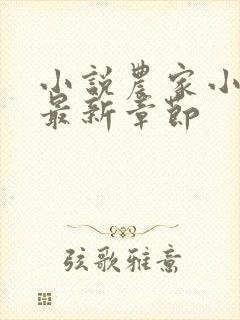 小説農家小
最新章節
弦歌雅意